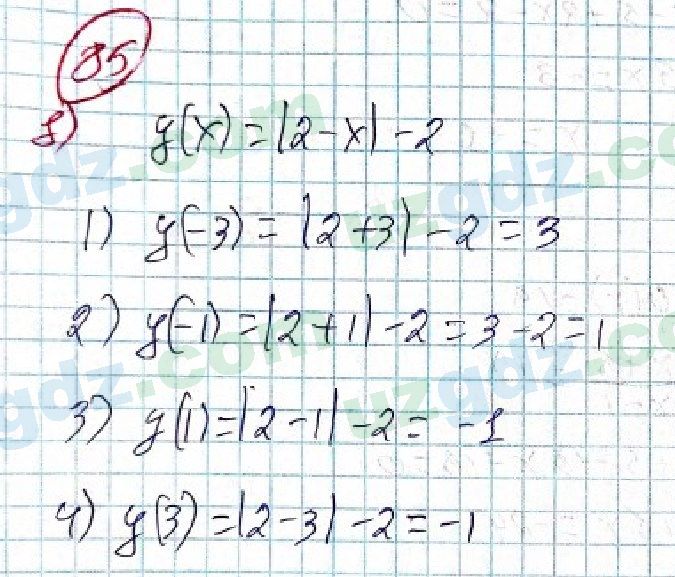 85
8)
y(x) = |2 - x| - 2
1) y(-3) = |2 + 3| - 2 = 3
2) y(-1) = |2 + 1| - 2 = 3 - 2 = 1
3) y(1) = |2 - 1| - 2 = -1
4) y(3) = |2 - 3| - 2 = -1
uzgdz.com